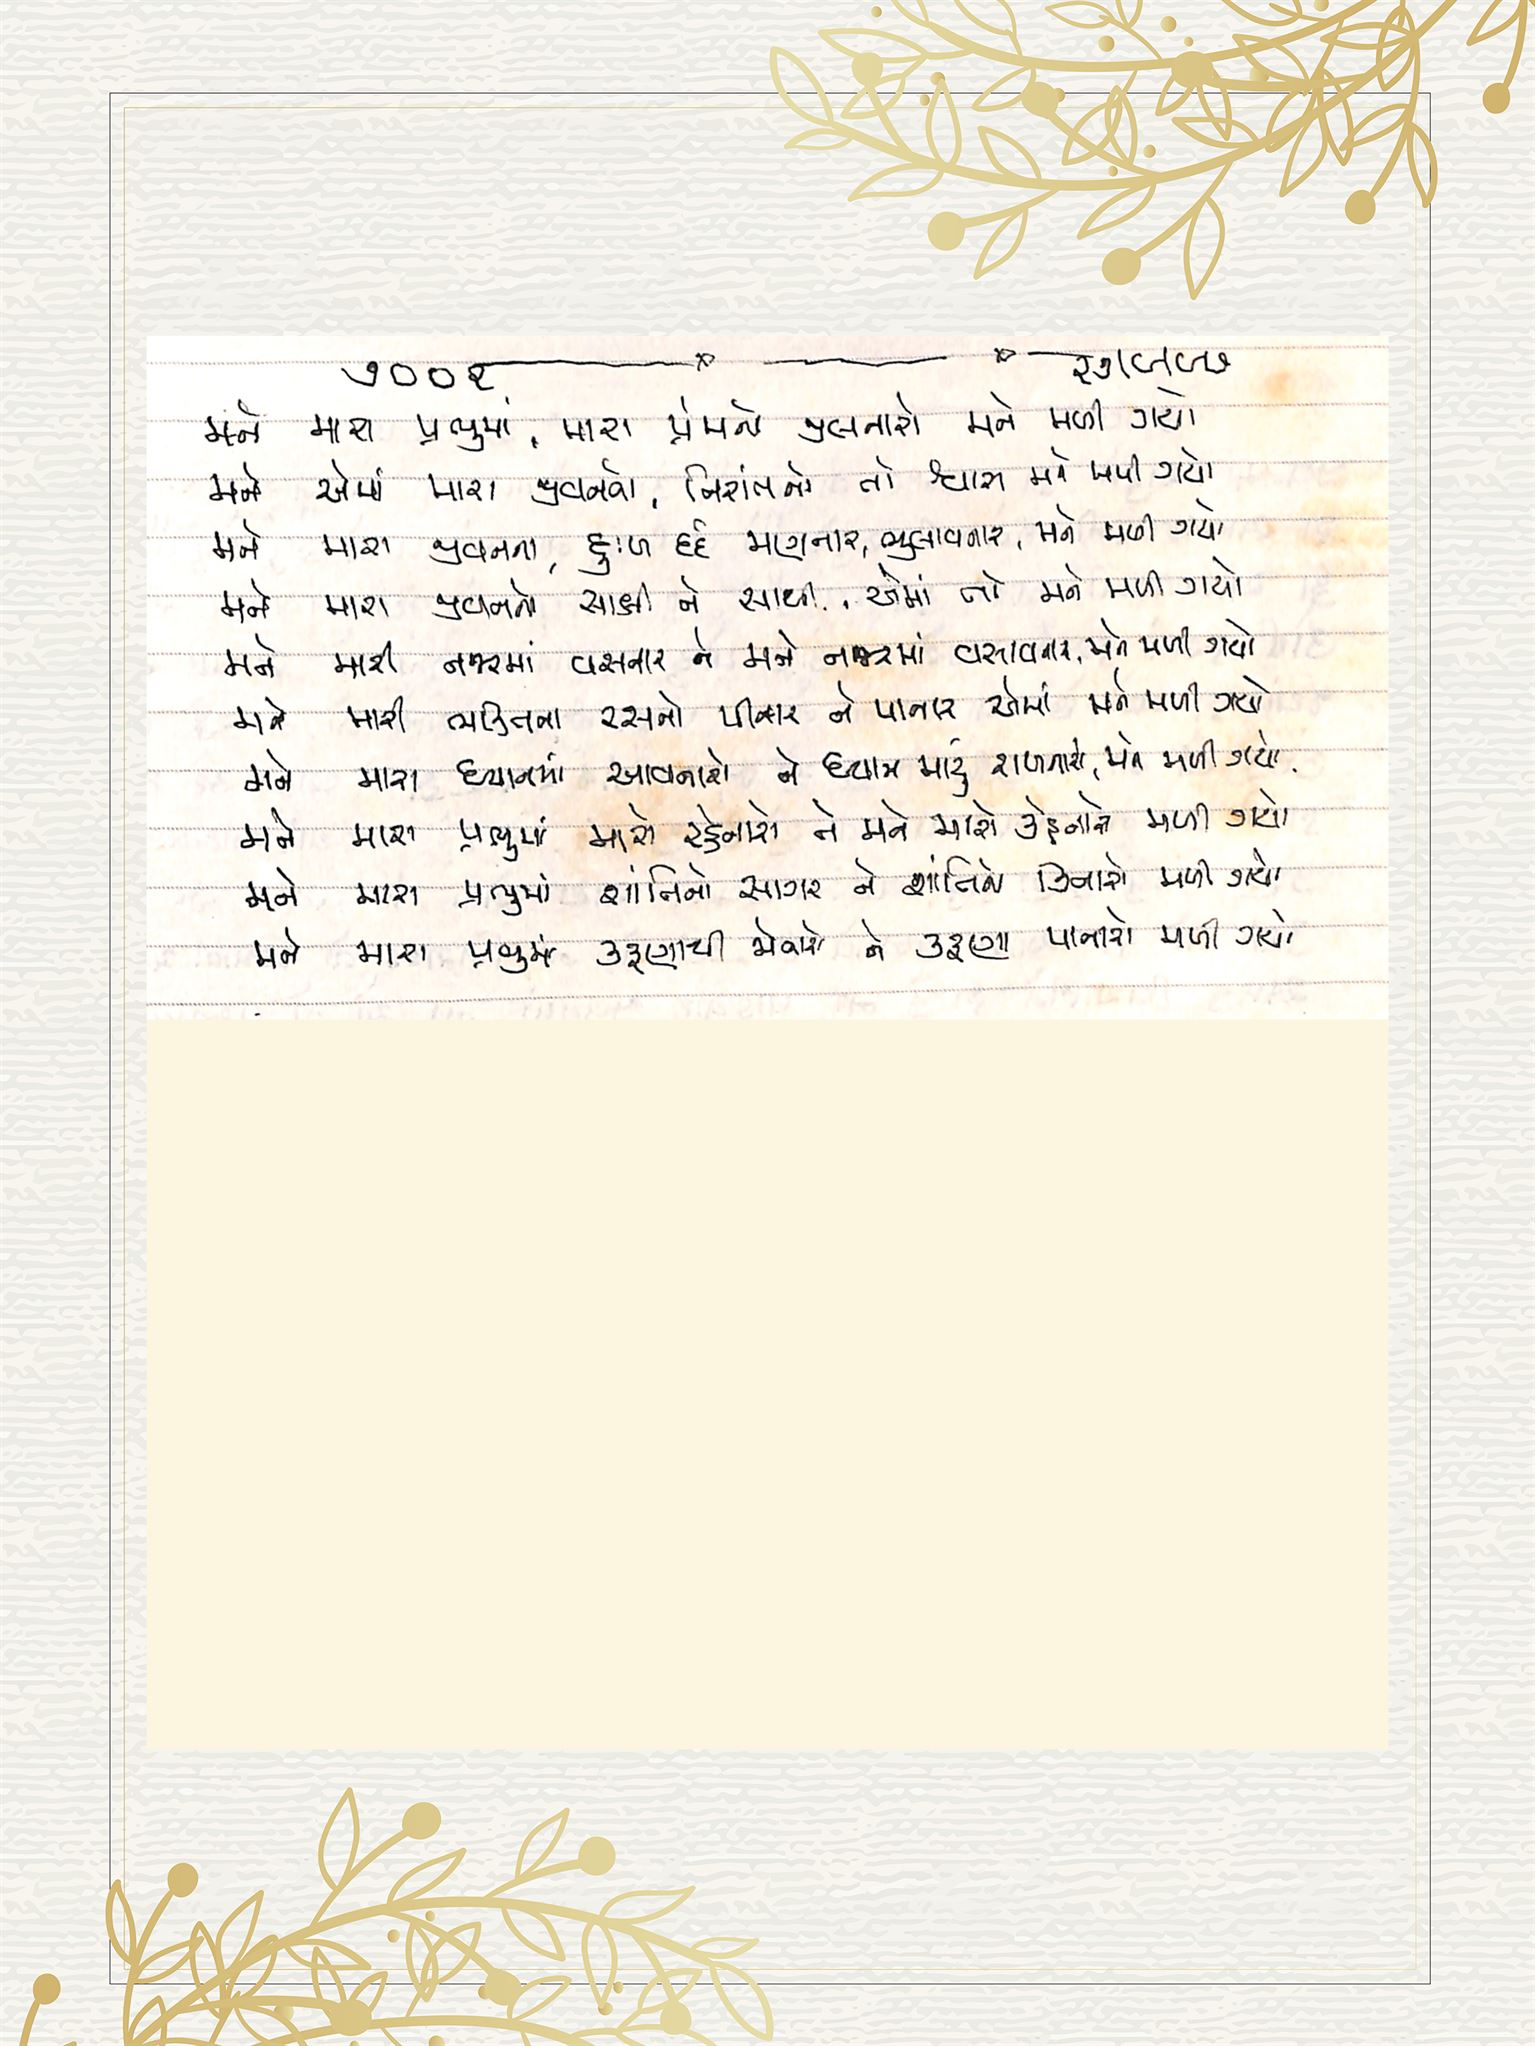 ૭૦૦૨
મને મારા પ્રભુમાં, મારા પ્રેમને ઝીલનારો મને મળી ગયો
મને એમાં મારા જીવનનો, નિરાંતનો તો શ્વાસ મને મળી ગયો
મને મારા જીવનના, દુઃખ દર્દ માણનાર, ભુલાવનાર, મને મળી ગયો
મને મારા જીવનનો સાક્ષી ને સાથી.. એમાં તો મને મળી ગયો
મને મારી નજરમાં વસનાર ને મને નજરમાં વસાવનાર, મને મળી ગયો
મને મારી ભક્તિના રસનો પીનાર ને પાનાર એમાં મને મળી ગયો
મને મારા ધ્યાનમાં આવનારો ને ધ્યાન મારું રાખનારો, મને મળી ગયો.
મને મારા પ્રભુમાં મારો રહેનારો ને મને મારો કહેનારો મળી ગયો
મને મારા પ્રભુમાં શાંતિનો સાગર ને શાંતિનો કિનારો મળી ગયો
મને મારા પ્રભુમાં કરૂણાથી ને કરૂણા પાનારો મળી ગયો